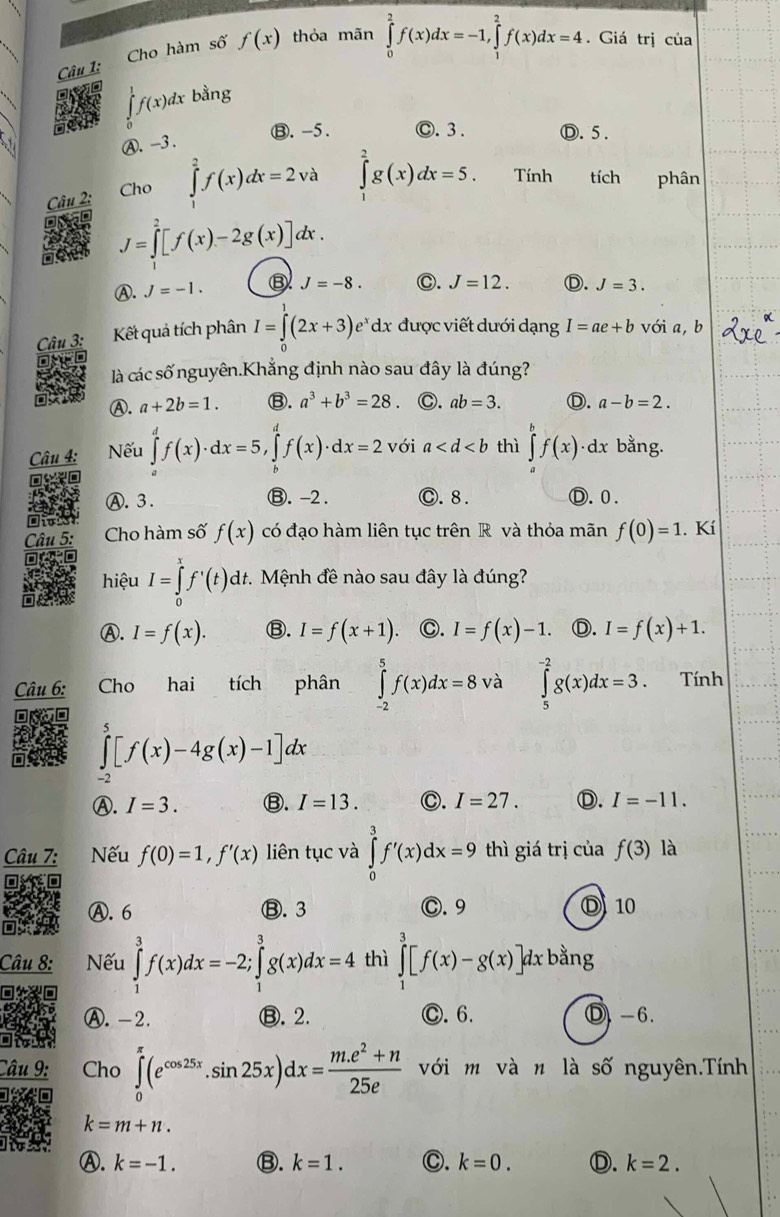 Câu 1: Cho hàm số f(x) thỏa mãn ∫₀² f(x)dx = -1, ∫₁² f(x)dx = 4. Giá trị của
∫₀¹ f(x)dx bằng
Ⓐ. -3. Ⓑ. -5. Ⓒ. 3. Ⓓ. 5.
Câu 2: Cho ∫₁² f(x)dx = 2 và ∫₁² g(x)dx = 5. Tính tích phân
J = ∫₁² [f(x) - 2g(x)]dx.
Ⓐ. J = -1. Ⓑ. J = -8. Ⓒ. J = 12. Ⓓ. J = 3.
Câu 3: Kết quả tích phân I = ∫₀¹ (2x+3)eˣdx được viết dưới dạng I = ae + b với a, b 2xeˣ -
là các số nguyên.Khẳng định nào sau đây là đúng?
Ⓐ. a + 2b = 1. Ⓑ. a³ + b³ = 28. Ⓒ. ab = 3. Ⓓ. a - b = 2.
Câu 4: Nếu ∫ₐᵈ f(x)·dx = 5, ∫_b^d f(x)·dx = 2 với a < d < b thì ∫ₐᵇ f(x)·dx bằng.
Ⓐ. 3. Ⓑ. -2. Ⓒ. 8. Ⓓ. 0.
Câu 5: Cho hàm số f(x) có đạo hàm liên tục trên ℝ và thỏa mãn f(0) = 1. Kí
hiệu I = ∫₀ˣ f'(t)dt. Mệnh đề nào sau đây là đúng?
Ⓐ. I = f(x). Ⓑ. I = f(x+1). Ⓒ. I = f(x) - 1. Ⓓ. I = f(x) + 1.
Câu 6: Cho hai tích phân ∫₋₂⁵ f(x)dx = 8 và ∫₅⁻² g(x)dx = 3. Tính
∫₋₂⁵ [f(x) - 4g(x) - 1]dx
Ⓐ. I = 3. Ⓑ. I = 13. Ⓒ. I = 27. Ⓓ. I = -11.
Câu 7: Nếu f(0) = 1, f'(x) liên tục và ∫₀³ f'(x)dx = 9 thì giá trị của f(3) là
Ⓐ. 6 Ⓑ. 3 Ⓒ. 9 Ⓓ. 10
Câu 8: Nếu ∫₁³ f(x)dx = -2; ∫₁³ g(x)dx = 4 thì ∫₁³ [f(x) - g(x)]dx bằng
Ⓐ. -2. Ⓑ. 2. Ⓒ. 6. Ⓓ. -6.
Câu 9: Cho ∫₀^π (e^(cos25x).sin 25x)dx = (m.e² + n)/(25e) với m và n là số nguyên.Tính
k = m + n.
Ⓐ. k = -1. Ⓑ. k = 1. Ⓒ. k = 0. Ⓓ. k = 2.